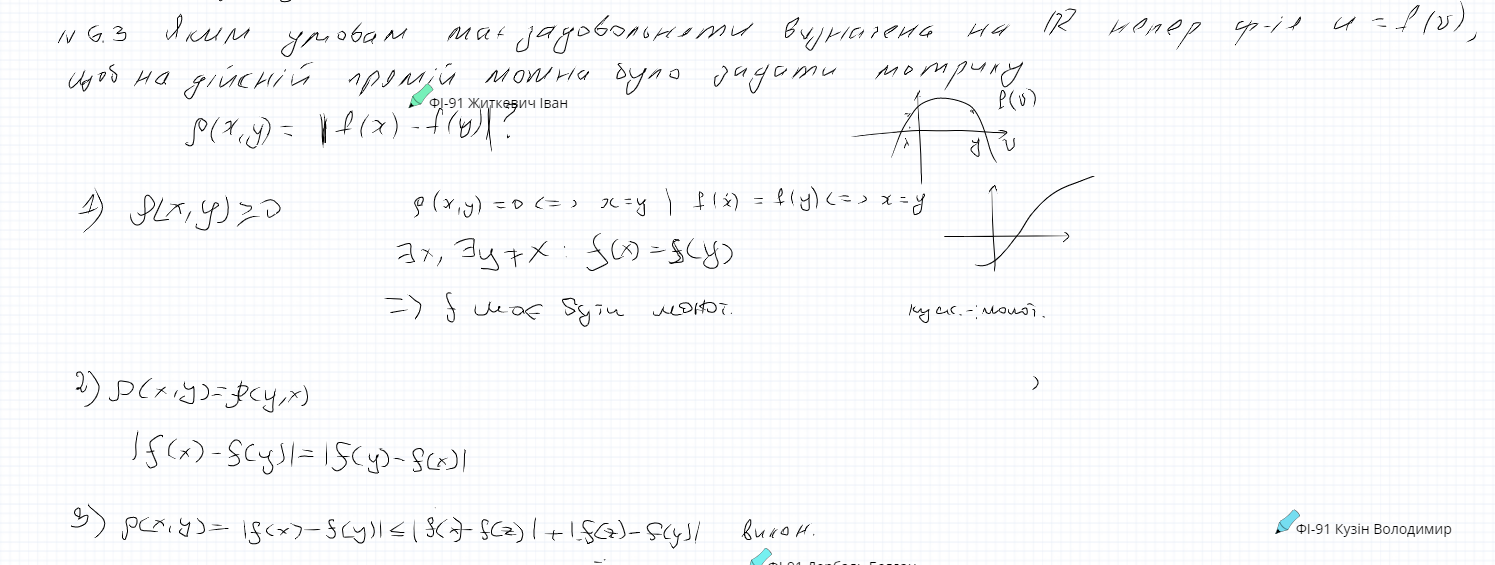 N 6.3 Яким умовам має задовольняти визначена на ℝ непер ф-ія u = f(v),
щоб на дійсній прямій можна було задати метрику
ФІ-91 Житкевич Іван
ρ(x,y) = |f(x) - f(y)|?
f(v)
x y v
1) ρ(x,y) ≥ 0 ρ(x,y) = 0 <=> x=y | f(x) = f(y) <=> x=y
∃x, ∃y ≠ x : f(x) = f(y)
=> f має бути монот. куск.-монот.
2) ρ(x,y) = ρ(y,x)
|f(x) - f(y)| = |f(y) - f(x)|
3) ρ(x,y) = |f(x) - f(y)| ≤ |f(x) - f(z)| + |f(z) - f(y)| викон.
ФІ-91 Кузін Володимир
ФІ-91